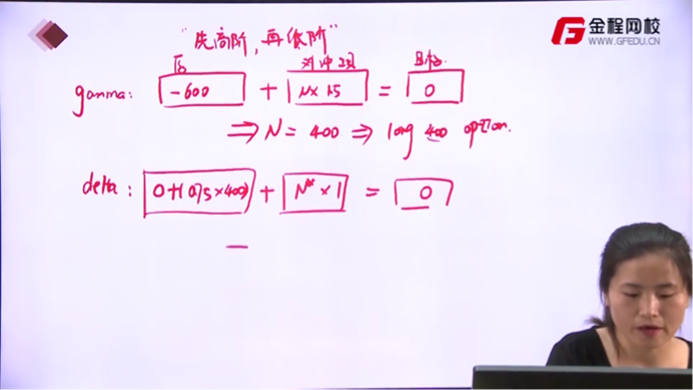 "先高阶，再低阶"
金程网校
WWW.GFEDU.CN
原 对冲项 目标
gamma: -600 + N×1.5 = 0
⇒ N = 400 ⇒ long 400 option.
delta: 0+(0.75×400) + N*×1 = 0